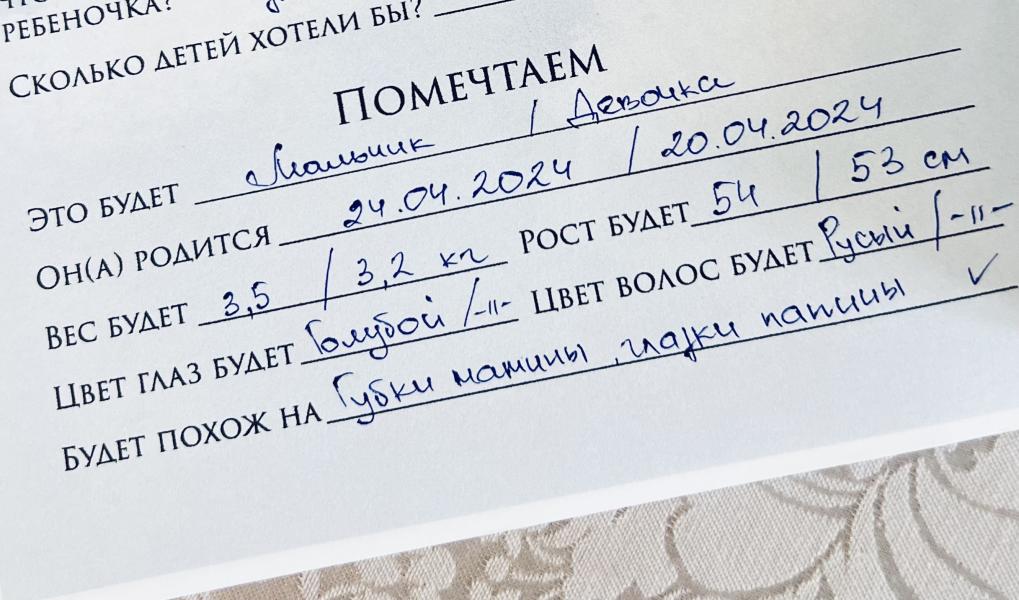 РЕБЕНОЧКА?
СКОЛЬКО ДЕТЕЙ ХОТЕЛИ БЫ?
ПОМЕЧТАЕМ
ЭТО БУДЕТ Мальчик / Девочка
ОН(А) РОДИТСЯ 24.04.2024 / 20.04.2024
ВЕС БУДЕТ 3,5 / 3,2 кг РОСТ БУДЕТ 54 / 53 см
ЦВЕТ ГЛАЗ БУДЕТ Голубой /-11- ЦВЕТ ВОЛОС БУДЕТ Русый /-11-
БУДЕТ ПОХОЖ НА Губки мамины, глазки папины ✓